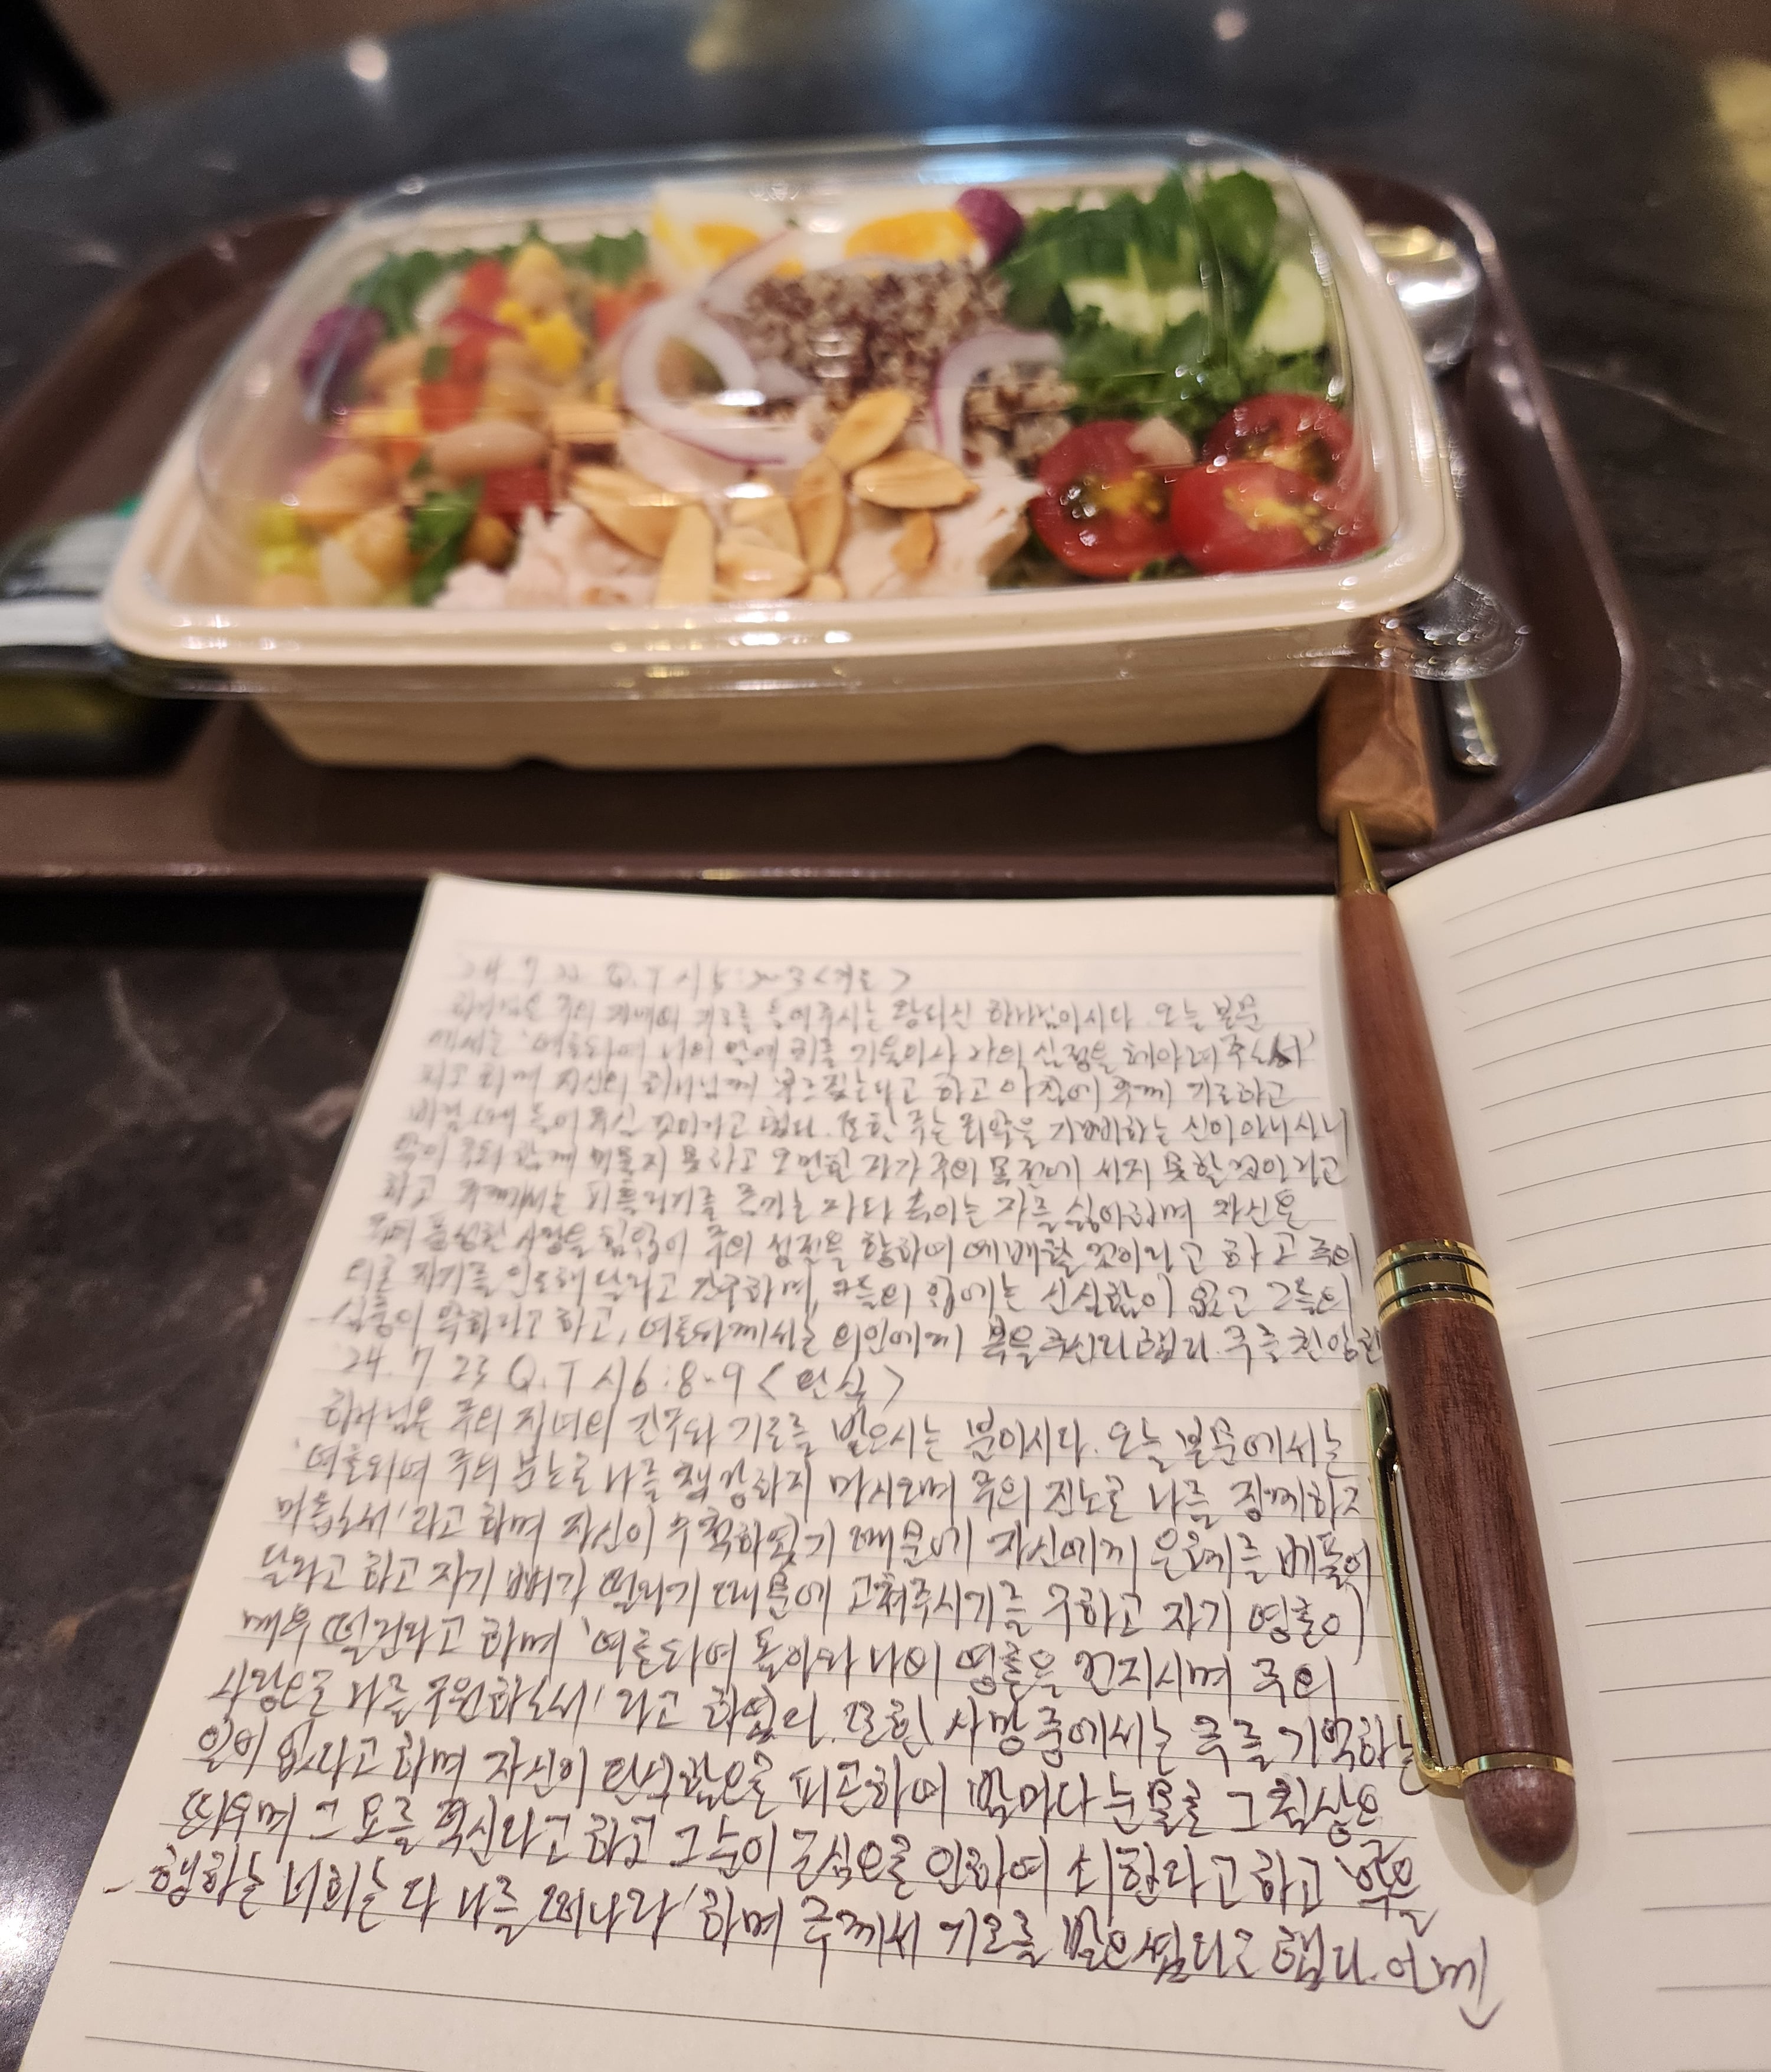 24. 7. 22 Q.T 시5:2~3 <기도>
하나님은 주의 자녀의 기도를 들어주시는 왕되신 하나님이시다. 오늘 본문
에서는 '여호와여 나의 말에 귀를 기울이사 나의 심정을 헤아려 주소서'
라고 하며 자신의 하나님께 부르짖는다고 하고 아침에 주께 기도하고
바랄 때에 들어 주실 것이라고 했다. 또한 주는 죄악을 기뻐하는 신이 아니시니
악이 주와 함께 머물지 못하고 오만한 자가 주의 목전에 서지 못할 것이라고
하고 주께서는 피 흘리기를 즐기는 자와 속이는 자를 싫어하며 자신은
주의 풍성한 사랑을 힘입어 주의 성전을 향하여 예배할 것이라고 하고 주의
의로 자기를 인도해 달라고 간구하며, 그들의 입에는 신실함이 없고 그들의
심중이 악하다고 하고, 여호와께서는 의인에게 복을 주신다 했다. 주를 찬양한
24. 7 23 Q.T 시6:8-9 <안심>
하나님은 주의 자녀의 간구와 기도를 받으시는 분이시다. 오늘 본문에서는
'여호와여 주의 분노로 나를 책망하지 마시오며 주의 진노로 나를 징계하지
마옵소서'라고 하며 자신이 수척하였기 때문에 자신에게 은혜를 베풀어
달라고 하고 자기 뼈가 떨리기 때문에 고쳐주시기를 구하고 자기 영혼이
매우 떨린다고 하며 '여호와여 돌아와 나의 영혼을 건지시며 주의
사랑으로 나를 구원하소서'라고 하였다. 또한 사망 중에서는 주를 기억하는
일이 없다고 하며 자신이 탄식함으로 피곤하여 밤마다 눈물로 그 침상을
띄우며 그 요를 적신다고 하고 그 눈이 근심으로 인하여 쇠한다고 하고 '악을
행하는 너희는 다 나를 떠나라' 하며 주께서 기도를 받으셨다고 했다. 아멘